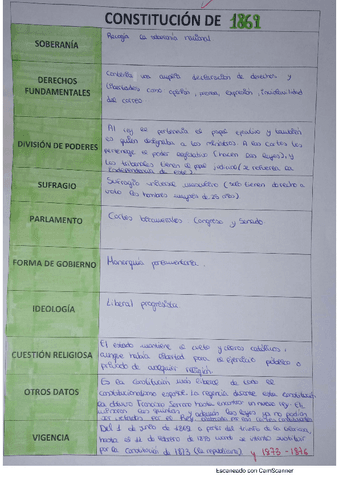 CONSTITUCIÓN DE 1869
SOBERANÍA
Recogía la soberanía nacional
DERECHOS
FUNDAMENTALES
Contenía una amplia declaración de derechos y
libertades como opinión, prensa, expresión, inviolabilidad
del correo
DIVISIÓN DE PODERES
Al rey le pertenecía el poder ejecutivo y también
es quien designaba a los ministros. A las Cortes les
pertenece el poder legislativo (hacen las leyes), y
los tribunales tienen el poder
SUFRAGIO
Sufragio universal masculino (solo tienen derecho a
voto los hombres mayores de 25 años)
PARLAMENTO
Cortes bicamerales Congreso y Senado
FORMA DE GOBIERNO
Monarquía parlamentaria.
IDEOLOGÍA
Liberal progresista
CUESTIÓN RELIGIOSA
El estado mantiene el culto y clero católicos,
aunque había libertad para el ejercicio público o
privado de cualquier religión.
OTROS DATOS
Es la constitución más liberal de todo el
constitucionalismo español. La regencia durante esta constitución
la obtuvo Francisco Serrano hasta encontrar un nuevo rey.
VIGENCIA
Del 1 de junio de 1869 a partir del triunfo de la
hasta el 11 de febrero de 1873
por la constitución de 1873 (la republicana) y 1873 - 1876
Escaneado con CamScanner